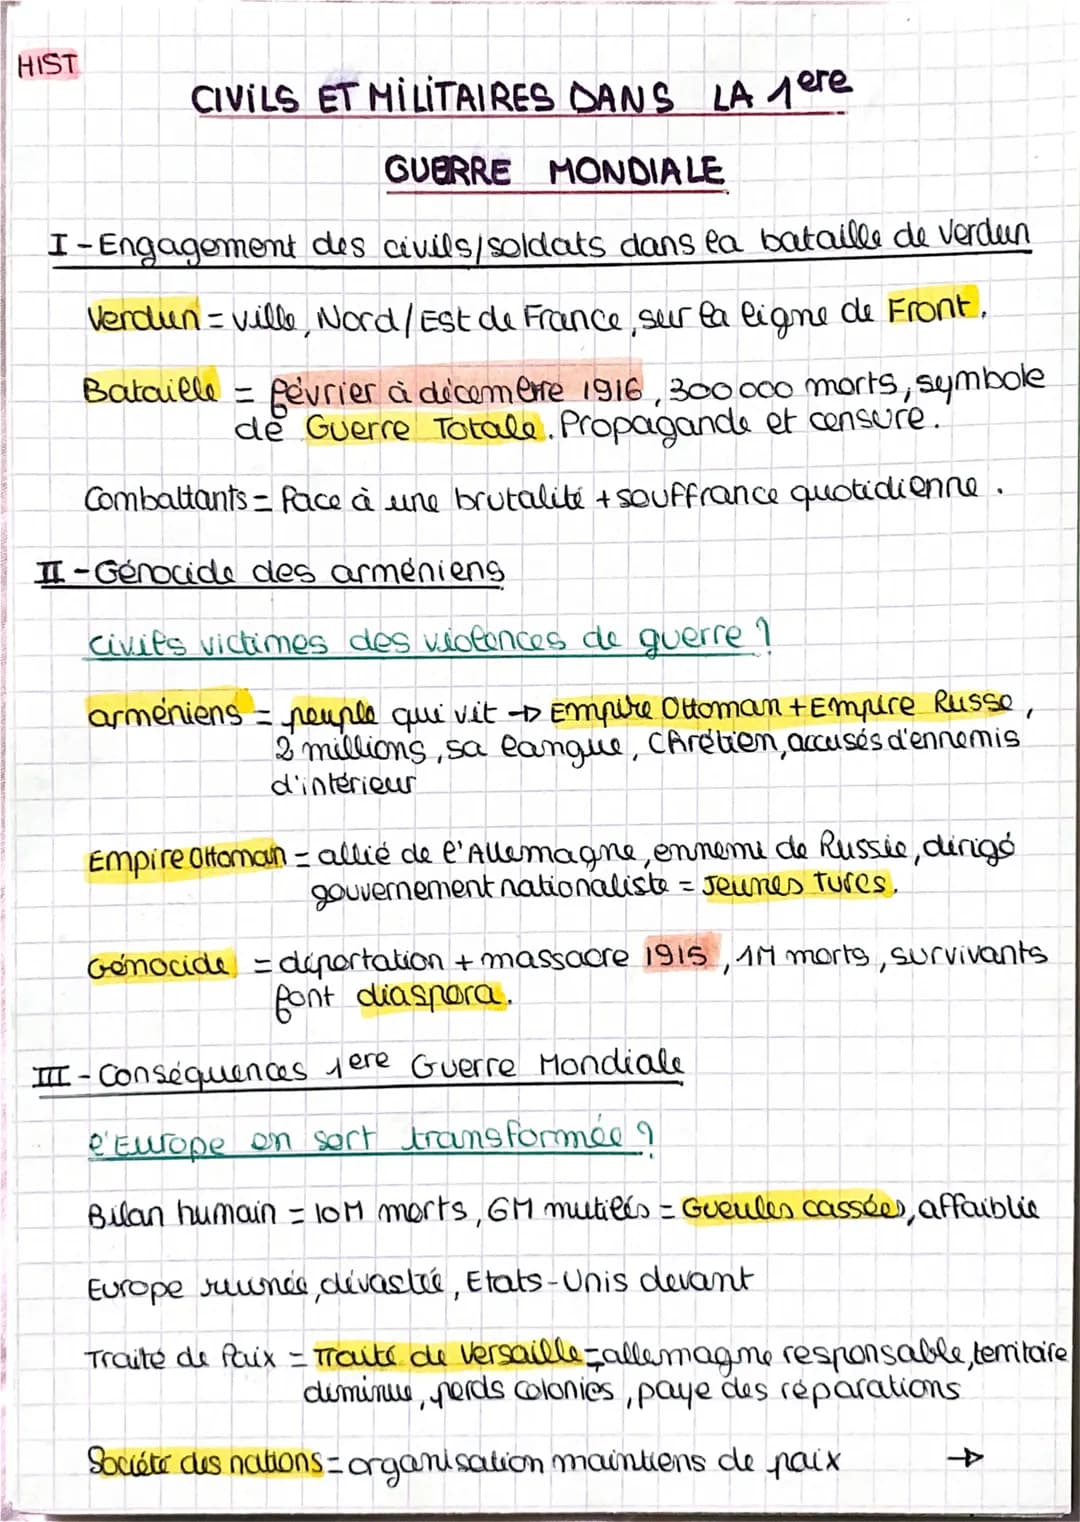 HIST
CIVILS ET MILITAIRES DANS LA 1ere
GUERRE MONDIALE
I - Engagement des civils/soldats dans la bataille de Verdun
Verdun = ville, Nord/Est de France, sur la ligne de Front.
Bataille = février à décembre 1916, 300 000 morts, symbole
de Guerre Totale. Propagande et censure.
Combattants = face à une brutalité + souffrance quotidienne.
II - Génocide des arméniens
civils victimes des violences de guerre ?
arméniens = peuple qui vit → Empire Ottoman + Empire Russe,
2 millions, sa langue, Chrétien, accusés d'ennemis
d'intérieur
Empire Ottoman = allié de l'Allemagne, ennemi de Russie, dirigé
gouvernement nationaliste = Jeunes Turcs.
Génocide = déportation + massacre 1915, 1M morts, survivants
font diaspora.
III - Conséquences 1ere Guerre Mondiale
l'Europe en sort transformée ?
Bilan humain = 10M morts, 6M mutilés = Gueules cassées, affaiblie
Europe ruinée, dévastée, Etats-Unis devant
Traité de Paix = Traité de Versaille = allemagne responsable, territoire
diminue, perds colonies, paye des réparations
Société des nations = organisation maintiens de paix →